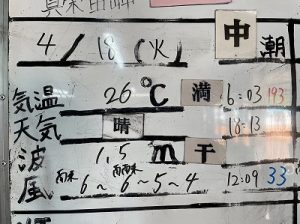 4/18(火) 中潮
気温 26℃ 満 6:03 193
天気 晴 18:13
波 1.5m 干
風 南西 南南西 6~6~5~4 12:09 33